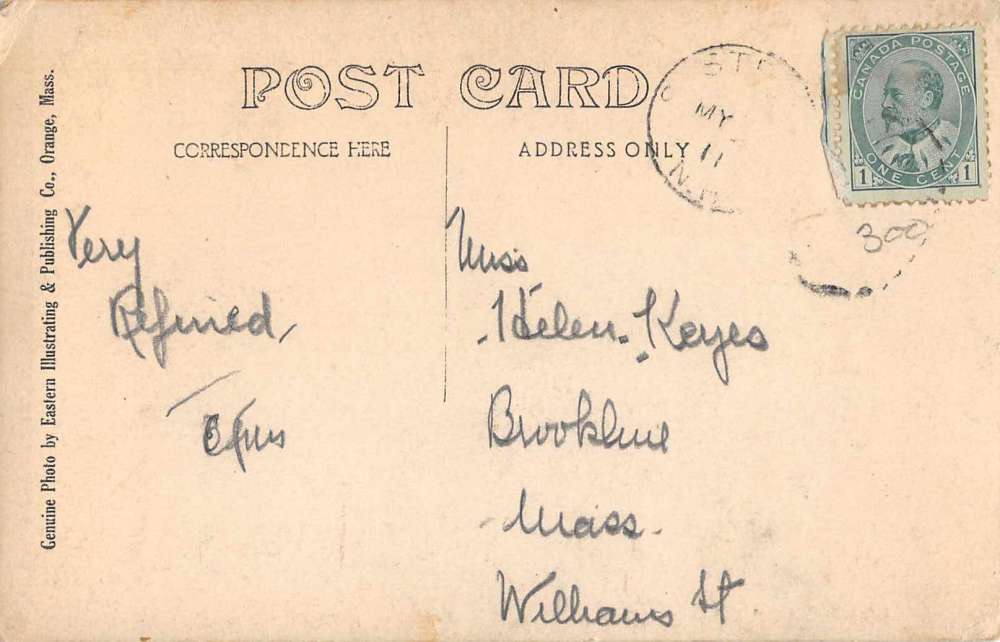 POST CARD
CORRESPONDENCE HERE
ADDRESS ONLY
Genuine Photo by Eastern Illustrating & Publishing Co., Orange, Mass.
CANADA POSTAGE
ONE CENT
1 1
ST
MY
11
N.
300
Very
Refined,
Miss
Helen. Keyes
Brookline
Mass.
Williams St.